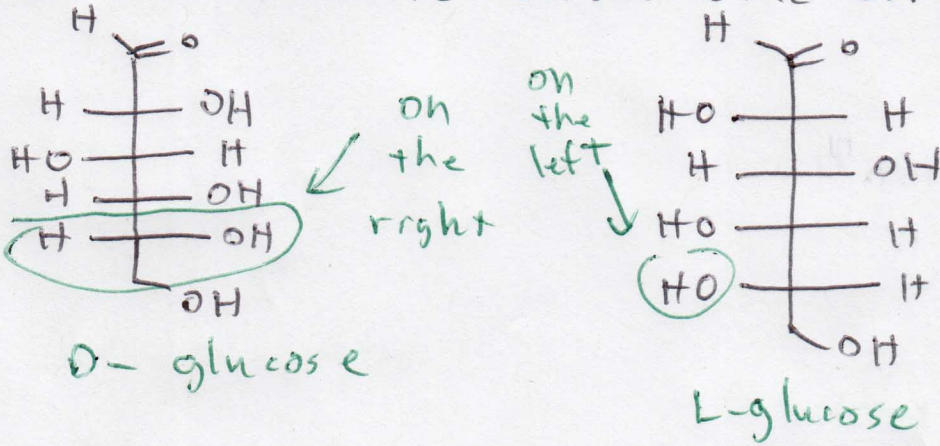 H
O
H OH
HO H
H OH
H OH
OH
D- glucose
on
the
right
on
the
left
H
O
HO H
H OH
HO H
HO H
OH
L-glucose